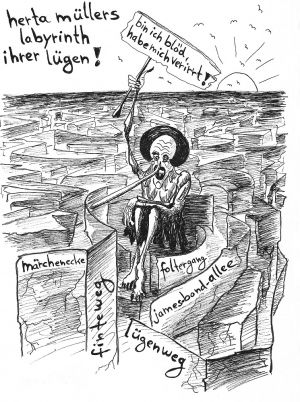 herta müllers
labyrinth
ihrer lügen!
bin ich blöd,
habe mich verirrt!
märchenecke
foltergang
jamesbond-allee
finteweg
lügenweg